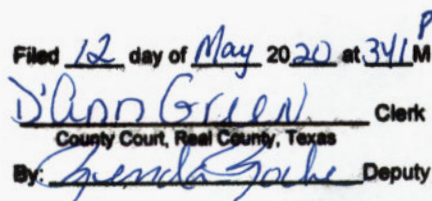 Filed 12 day of May 2020 at 341 PM
D'Ann Green Clerk
County Court, Real County, Texas
By: Deputy